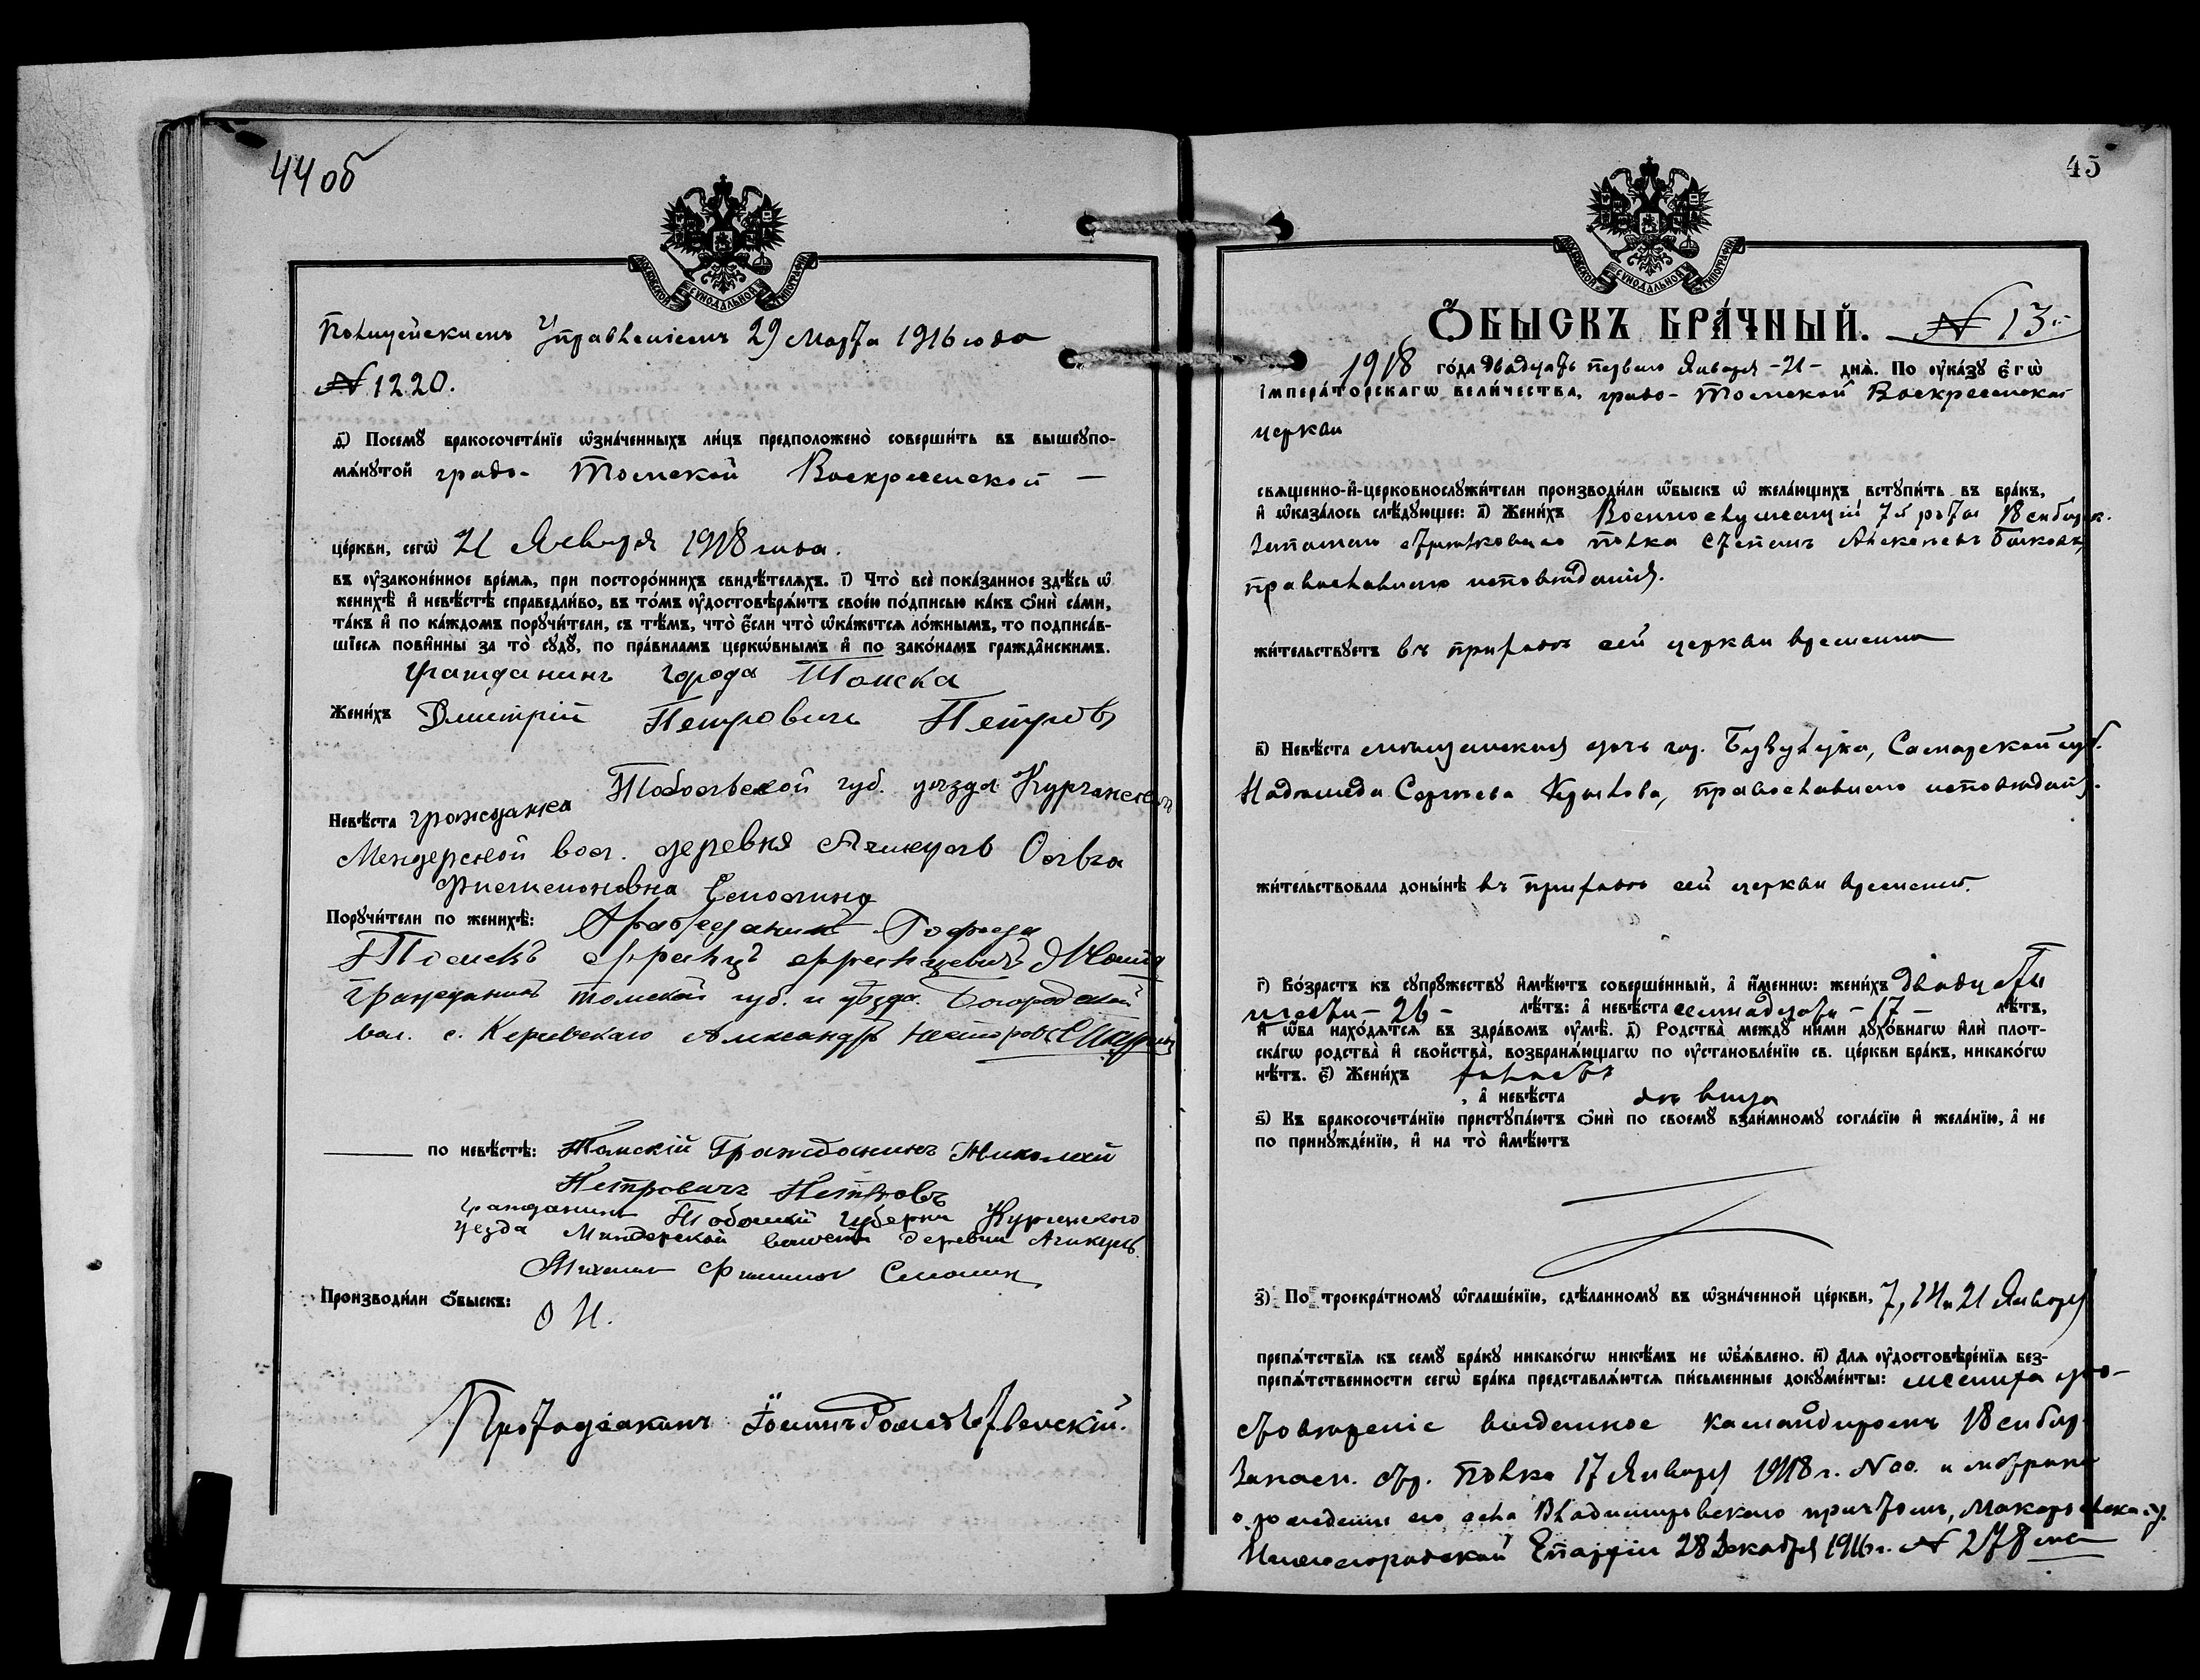 44 об
МОСКОВСКОЙ СУНОДАЛЬНОЙ ТИПОГРАФІИ
Полицейскимъ Управленіемъ 29 Марта 1916 года
№ 1220.
д҃) Посемꙋ̀ бракосочета́нїе ѡ҆зна́ченныхъ ли́цъ предположено̀ соверши́ть въ вышеꙋпо-
мѧ́нꙋтой градо- Томской Воскресенской —
це́ркви, сегѡ̀ 21 Января 1918 года.
въ ᲂу҆зако́нное вре́мѧ, при посторо́ннихъ свидѣ́телѧхъ. і҃) Что̀ всѐ пока́занное здѣ́сь ѡ҆
женихѣ̀ и҆ невѣ́стѣ справедли́во, въ то́мъ ᲂу҆достовѣрѧ́ютъ свое́ю по́дписью ка́къ ѻ҆нѝ са́ми,
та́къ и҆ по ка́ждомъ порꙋчи́тели, съ тѣ́мъ, что̀ є҆́сли что̀ ѡ҆ка́жетсѧ ло́жнымъ, то подписа́в-
шїесѧ пови́нны за то̀ сꙋдꙋ̀, по пра́виламъ церкѡ́внымъ и҆ по зако́намъ гражда́нскимъ.
Гражданинъ города Томска
Жени́хъ Дмитрій Петровичъ Петровъ
Тобольской губ. уезда Курганского
Невѣ́ста гражданка
Мендерской вол. деревня Ачикуль Ольга
Филимоновна Смолина
Порꙋчи́тели по женихѣ̀: Гражданин Города
Томскъ Францъ Францевичъ
Гражданинъ томской губ. и уезда Богородской
вол. с. Александръ
по невѣ́стѣ: Томскій Гражданинъ Николай
Петровичъ Петровъ
Гражданинъ Тобольской Губерни Курганского
уезда Мендерской волости деревни Ачикуль
Михаилъ Филимонов Смолин
Производи́ли ѻ҆́быскъ:
о И.
Протодіаконъ Іоаннъ Рождественскій.
45
МОСКОВСКОЙ СУНОДАЛЬНОЙ ТИПОГРАФІИ
Ѻ҆БЫСКЪ БРА́ЧНЫЙ. № 13
1918 го́да двадцать перваго Января -21- днѧ̀. По ᲂу҆ка́зꙋ є҆гѡ̀
і҆мпера́торскагѡ вели́чества, градо- Томской Воскресенской
церкви
свѧщенно-и҆-церковнослꙋжи́тели производи́ли ѡ҆́быскъ ѡ҆ жела́ющихъ встꙋпи́ть въ бра́къ,
и҆ ѡ҆каза́лось слѣ́дꙋющее: а҃) Жени́хъ Военнослужащій 7й роты 18 сибирск.
запаснаго стрѣлковаго полка Степанъ Алексѣевъ
православнаго исповѣданія.
жи́тельствꙋетъ въ приходѣ сей церкви временно
в҃) Невѣ́ста мѣщанская дочь гор. Бузулука, Самарской губ.
Надежда Сергѣева Крылова, православнаго исповѣданія.
жи́тельствовала доны́нѣ въ приходѣ сей церкви временно.
г҃) Во́зрастъ къ сꙋпрꙋ́жествꙋ и҆мѣ́ютъ соверше́нный, а҆ и҆́меннѡ: жени́хъ двадцати
шести - 26 - лѣ́тъ: а҆ невѣ́ста семнадцати - 17 - лѣ́тъ,
и҆ ѡ҆́ба нахо́дѧтсѧ въ здра́вомъ ᲂу҆мѣ̀. д҃) Родства̀ междꙋ̀ ни́ми дꙋхо́внагѡ и҆лѝ плот-
ска́гѡ родства̀ и҆ свойства̀, возбранѧ́ющагѡ по ᲂу҆становле́нїю св. це́ркви бра́къ, никако́гѡ
нѣ́тъ. є҃) Жени́хъ холостъ
, а҆ невѣ́ста дѣвица
ѕ҃) Къ бракосочета́нїю пристꙋпа́ютъ ѻ҆нѝ по своемꙋ̀ взаи́мномꙋ согла́сїю и҆ жела́нїю, а҆ не
по принꙋжде́нїю, и҆ на то̀ и҆мѣ́ютъ
з҃) По троекра́тномꙋ ѡ҆глаше́нїю, сдѣ́ланномꙋ въ ѡ҆зна́ченной це́ркви, 7, 14 и 21 Января
препѧ́тствїѧ къ семꙋ̀ бра́кꙋ никако́гѡ никѣ́мъ не ѡ҆б̾ѧ́влено. и҃) Длѧ ᲂу҆достовѣре́нїѧ без-
препѧ́тственности сегѡ̀ бра́ка представлѧ́ютсѧ пи́сьменные докꙋме́нты: жениха удо-
стовѣреніе выданное командиромъ 18 сибир.
Запасн. стр. полка 17 Января 1918 г. № и метрика
о рожденіи его села Владимірскаго причтомъ, Макарьевска у.
Нижегородской Епархіи 28 Декабря 1916 г. № 278